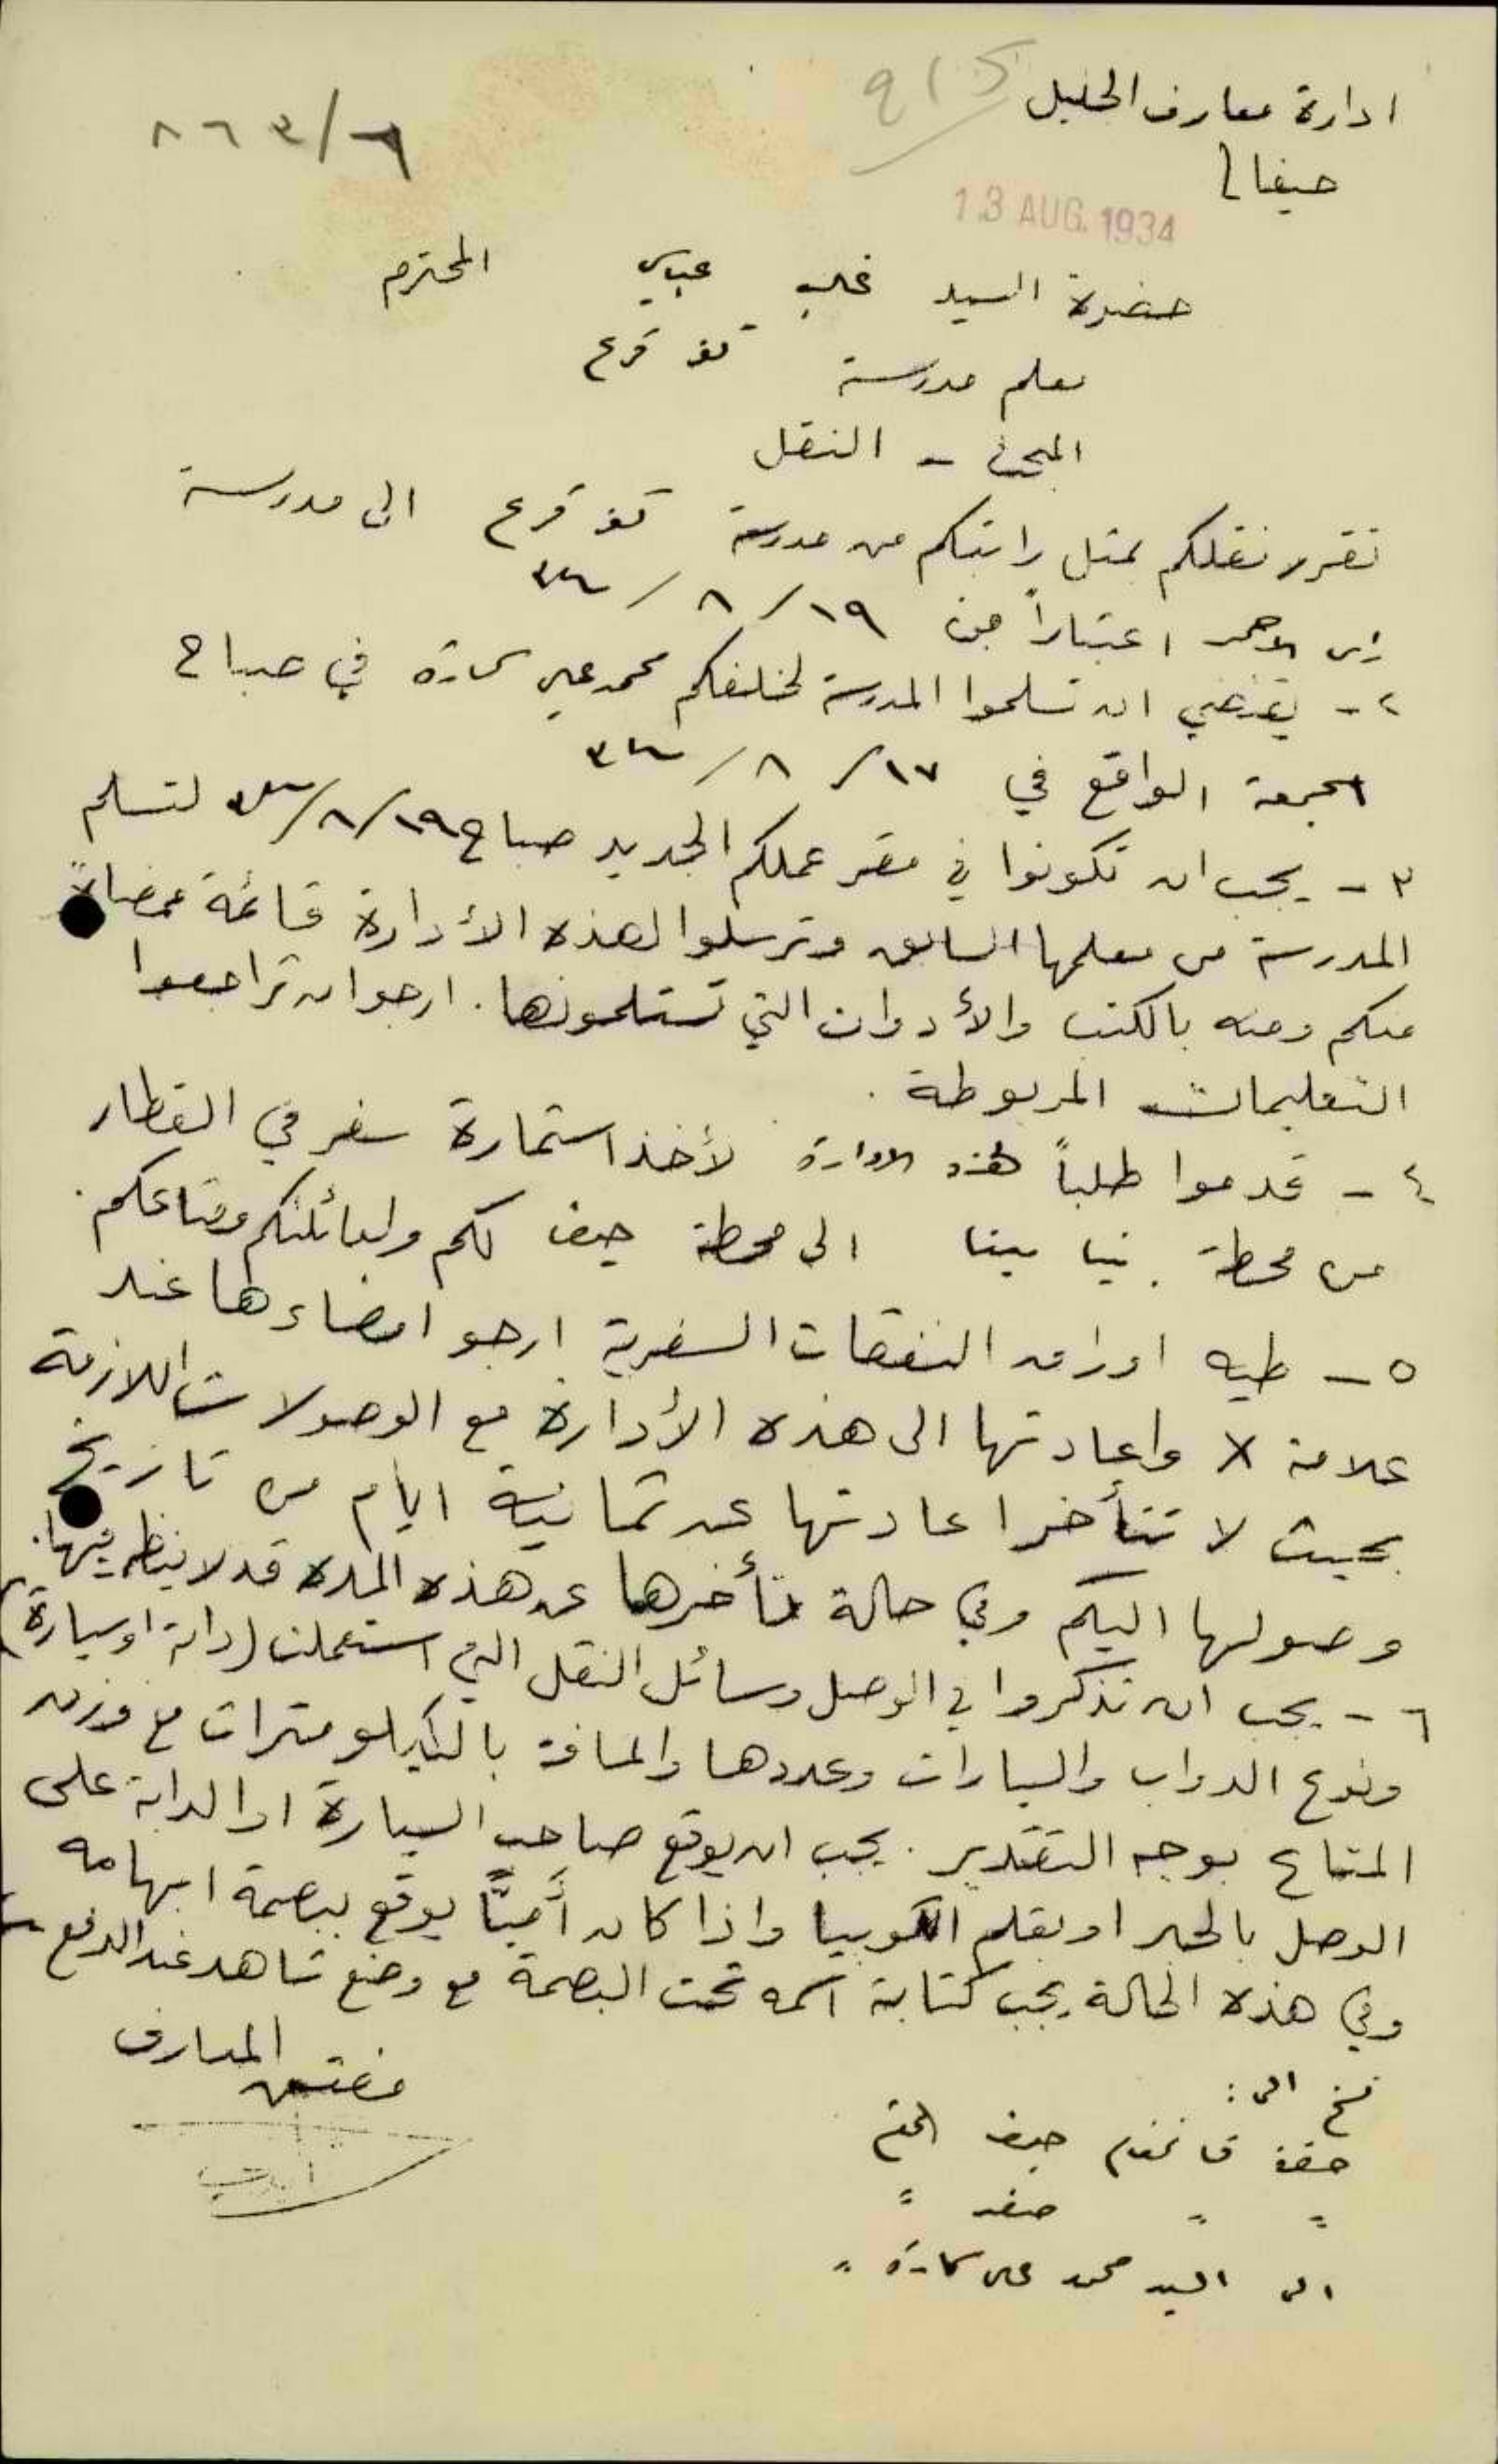 ادارة معارف الجليل
حيفا
٨٦٣/٦
13 AUG. 1934
حضرة السيد عباسي المحترم
معلم مدرسة كفر قرع
المبحث - النقل
تقرر نقلكم بمثل راتبكم من مدرسة كفر قرع الى مدرسة
راس الاحمر اعتباراً من ١٩/٨/٣٤
٢- يقتضي ان تسلموا المدرسة لخلفكم محمد علي في صباح
الجمعة الواقع في ١٧/٨/٣٤
٣- يجب ان تكونوا في مقر عملكم الجديد صباح ١٩/٨/٣٤ لتسلم
المدرسة من معلمها السابق وترسلوا لهذه الأدارة قائمة ممضاة
منكم ومنه بالكتب والأدوات التي تستلمونها. ارجو ان تراجعوا
التعليمات المربوطة.
٤- قدموا طلباً لهذه الادارة لأخذ استمارة سفر في القطار
من محطة بنيا مينا الى محطة حيفا لكم ولعائلتكم ومتاعكم.
٥- طيه اوراق النفقات السفرية ارجو امضاءها عند
علامة X واعادتها الى هذه الأدارة مع الوصولات اللازمة
بحيث لا تتأخر اعادتها عن ثمانية ايام من تاريخ
وصولها اليكم وفي حالة تأخرها عن هذه المدة قد لا ينظر فيها.
٦- يجب ان تذكروا في الوصل وسائل النقل التي استعملت (دابة او سيارة)
ونوع الدواب والسيارات وعددها والمسافة بالكيلو مترات مع وزن
المتاع بوجه التقدير. يجب ان يوقع صاحب السيارة او الدابة على
الوصل بالحبر او بقلم الكوبيا واذا كان أميًّا يوقع ببصمة ابهامه
وفي هذه الحالة يجب كتابة اسمه تحت البصمة مع وضع شاهد عند الدفع
مفتش المعارف
نسخ الى:
حضرة قائمقام حيفا المحترم
" " صفد "
الى السيد محمد علي "